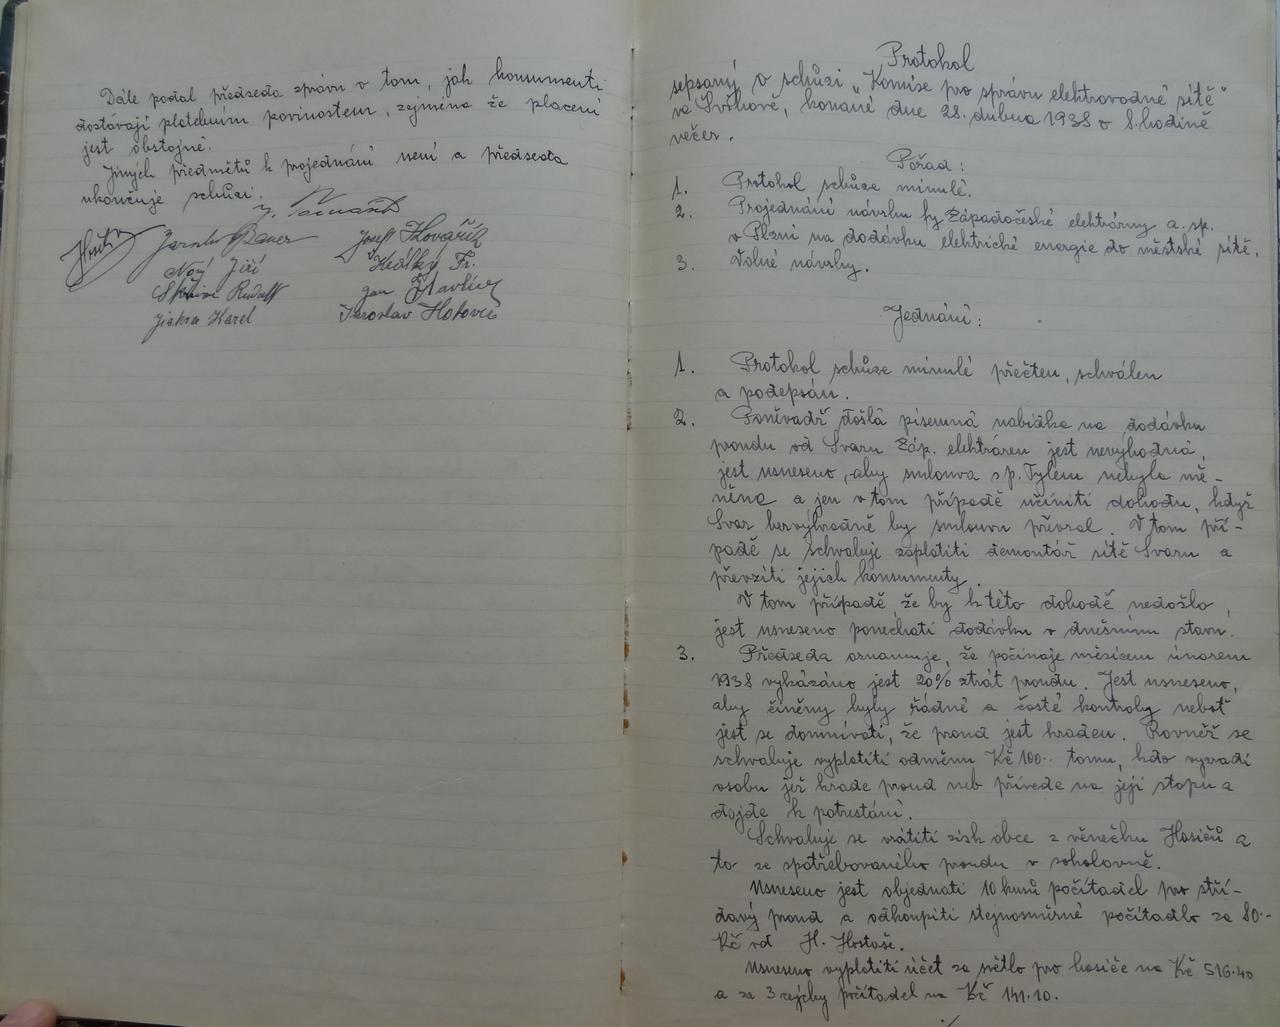 Dále podal předseda zprávu o tom, jak konsumenti
dostávají platebním povinostem, zejména že placení
jest obstojné.
Jiných předmětů k projednání není a předseda
ukončuje schůzi.
Jaroslav Bauer Josef Kovařík
Nový Jiří Fr.
Rudolf Jan Havlíček
Jiskra Karel Jaroslav
Protokol
sepsaný o schůzi „Komise pro správu elektrovodné sítě"
ve Švihově, konané dne 28. dubna 1938 o 8. hodině
večer.
Pořad:
1. Protokol schůze minulé.
2. Projednání návrhu fy Západočeské elektrárny a. sp.
v Plzni na dodávku elektrické energie do městské sítě.
3. Volné návrhy.
Jednání:
1. Protokol schůze minulé přečten, schválen
a podepsán.
2. Poněvadž došlá písemná nabídka na dodávku
proudu od Svazu Záp. elektráren jest nevýhodná,
jest usneseno, aby smlouva s p. Tylem nebyla mě-
něna a jen v tom případě učiniti dohodu, když
Svaz bezvýhradně by smlouvu převzal. V tom pří-
padě se schvaluje zaplatiti demontáž sítě Svazu a
převzíti jejich konsumenty.
V tom případě, že by k této dohodě nedošlo,
jest usneseno ponechati dodávku v dnešním stavu.
3. Předseda oznamuje, že počínaje měsícem únorem
1938 vykázáno jest 20% ztrát proudu. Jest usneseno,
aby činěny byly řádné a časté kontroly neboť
jest se domnívati, že proud jest kraden. Rovněž se
schvaluje vyplatiti odměnu Kč 100.- tomu, kdo vyzradí
osobu jež krade proud neb přivede na její stopu a
dojde k potrestání.
Schvaluje se vrátiti zisk obce z věnečku Hasičů a
to ze spotřebovaného proudu v sokolovně.
Usneseno jest objednati 10 kusů počítadel pro stří-
davý proud a odkoupiti stejnosměrné počítadlo za 80.-
Kč od H. Hostaše.
Usneseno vyplatiti účet za světlo pro hasiče na Kč 516.40
a za 3 cejchy počítadel na Kč 141.10.